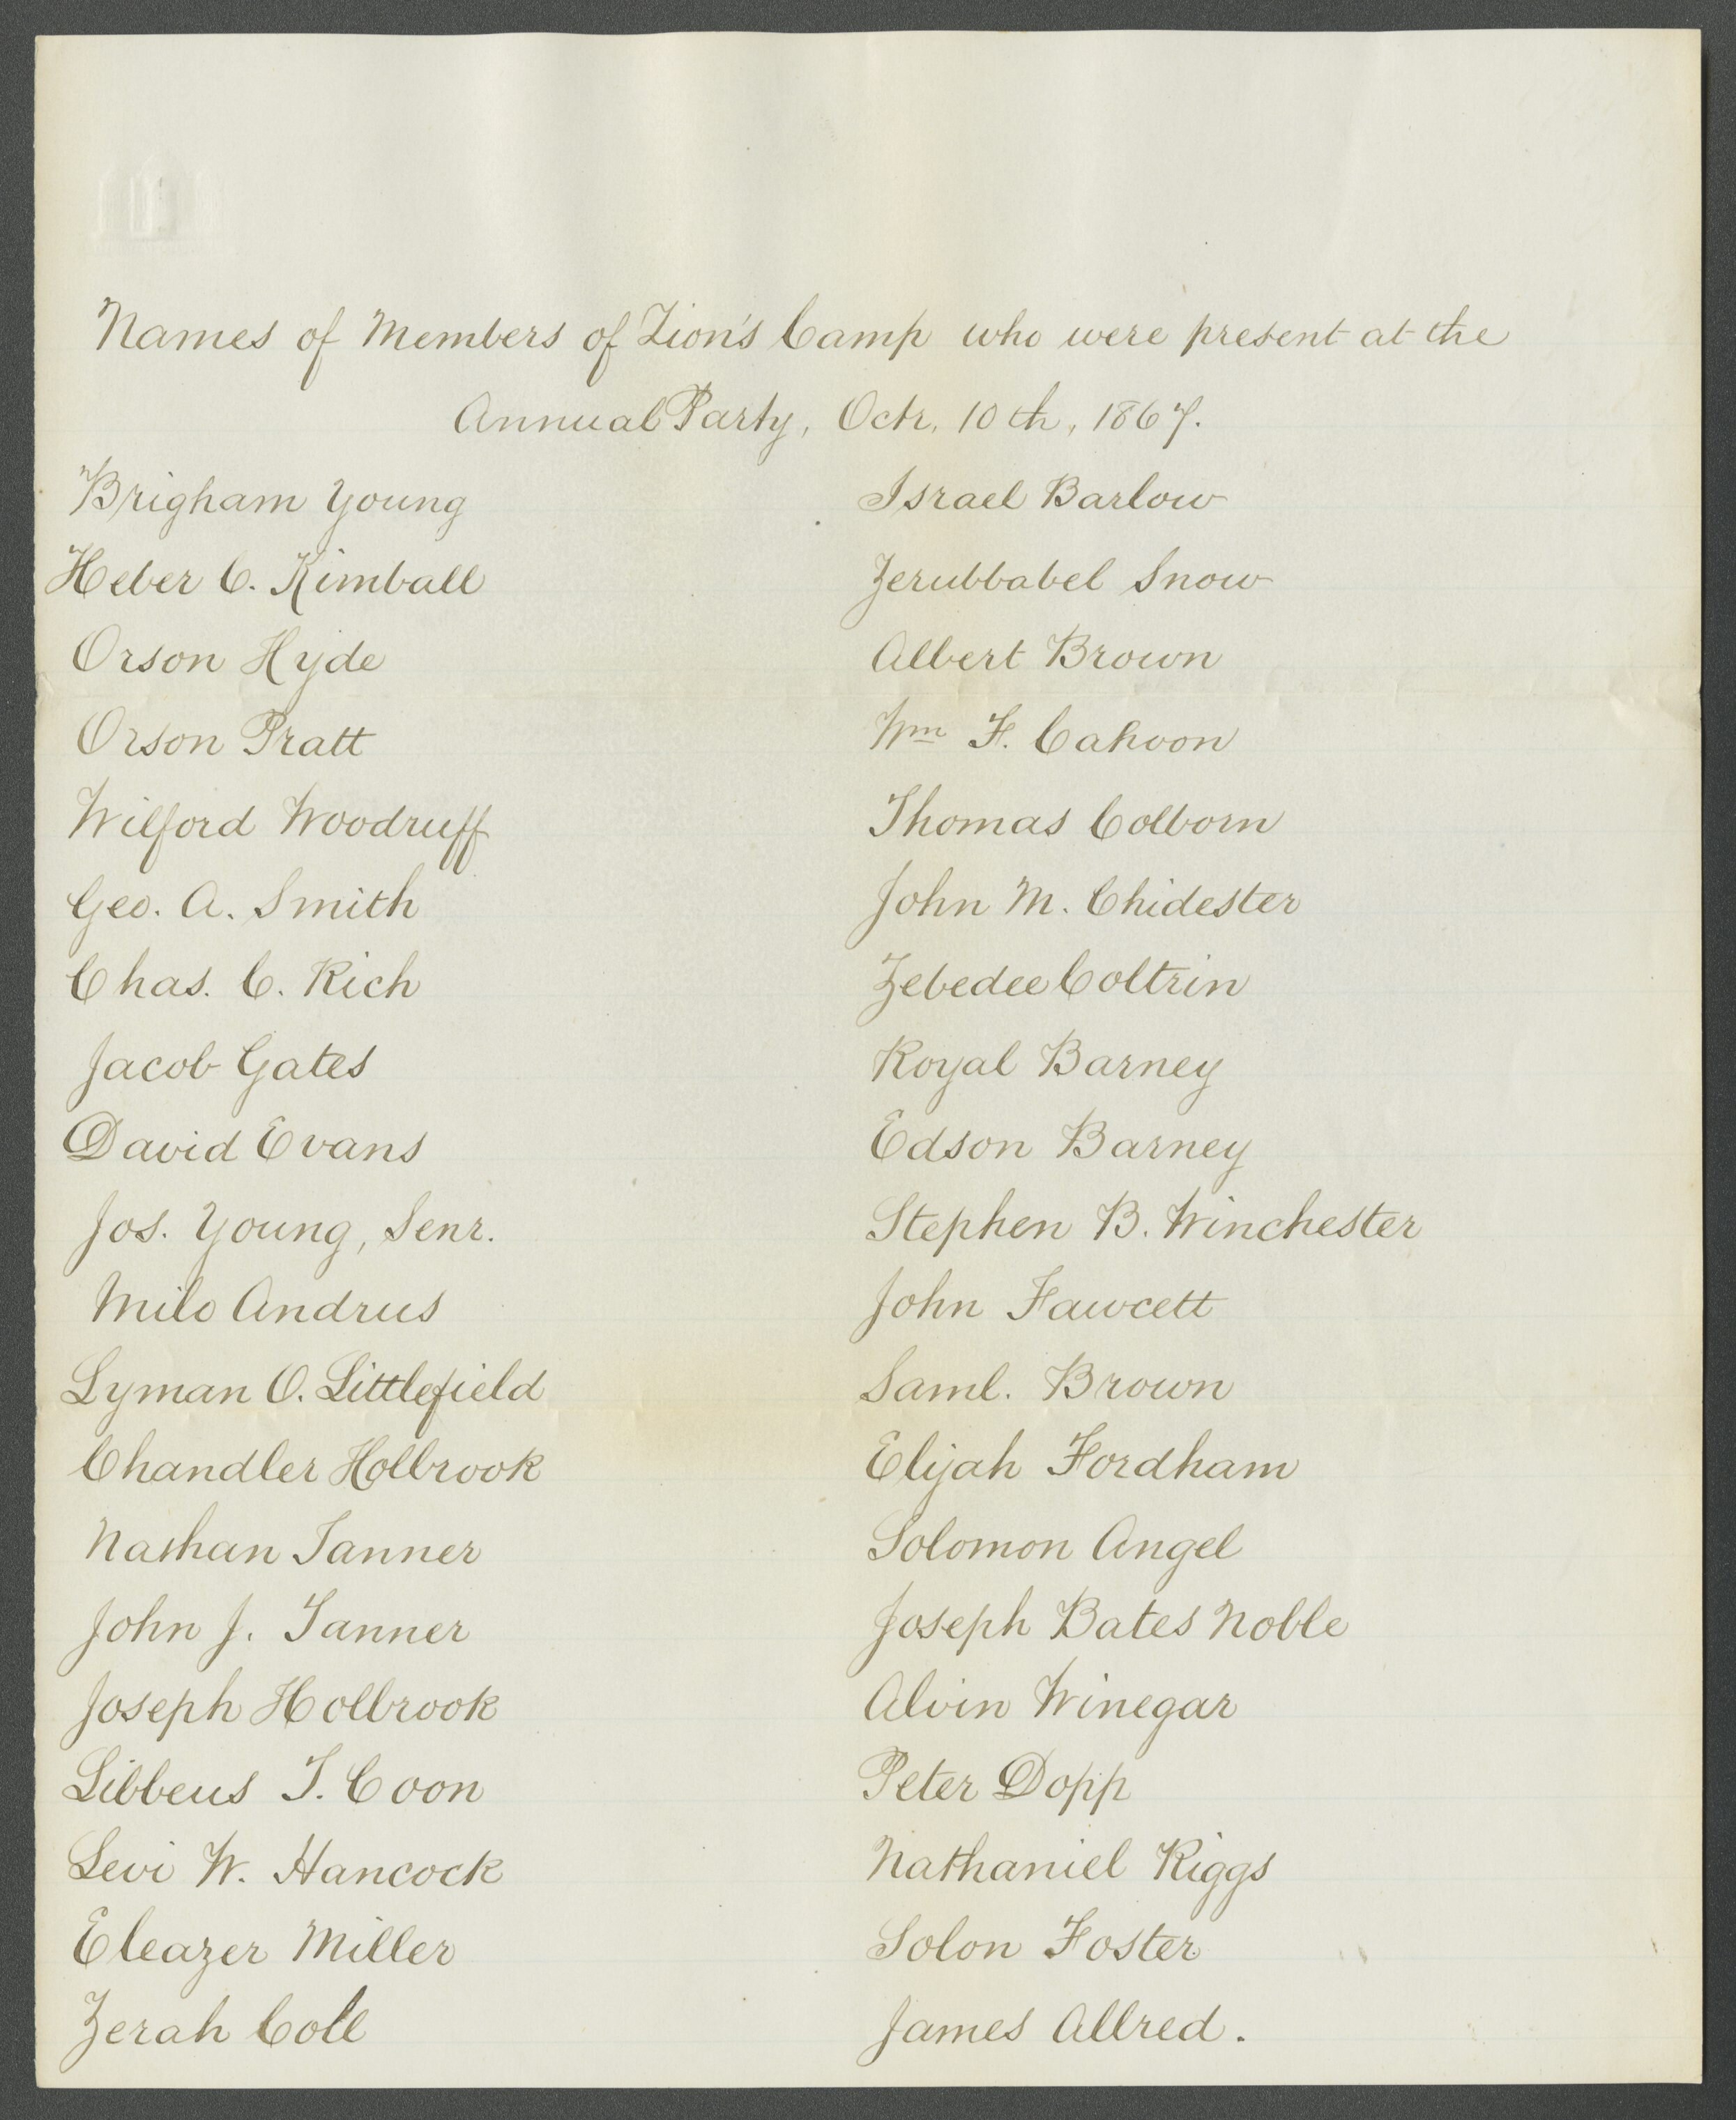 Names of Members of Zion's Camp who were present at the
Annual Party, Octr, 10th, 1867.
Brigham Young
Heber C. Kimball
Orson Hyde
Orson Pratt
Wilford Woodruff
Geo. A. Smith
Chas. C. Rich
Jacob Gates
David Evans
Jos. Young, Senr.
Milo Andrus
Lyman O. Littlefield
Chandler Holbrook
Nathan Tanner
John J. Tanner
Joseph Holbrook
Libbeus T. Coon
Levi W. Hancock
Eleazer Miller
Zerah Cole
Israel Barlow
Zerubbabel Snow
Albert Brown
Wm F. Cahoon
Thomas Colborn
John M. Chidester
Zebedee Coltrin
Royal Barney
Edson Barney
Stephen B. Winchester
John Fawcett
Saml. Brown
Elijah Fordham
Solomon Angel
Joseph Bates Noble
Alvin Winegar
Peter Dopp
Nathaniel Riggs
Solon Foster
James Allred.